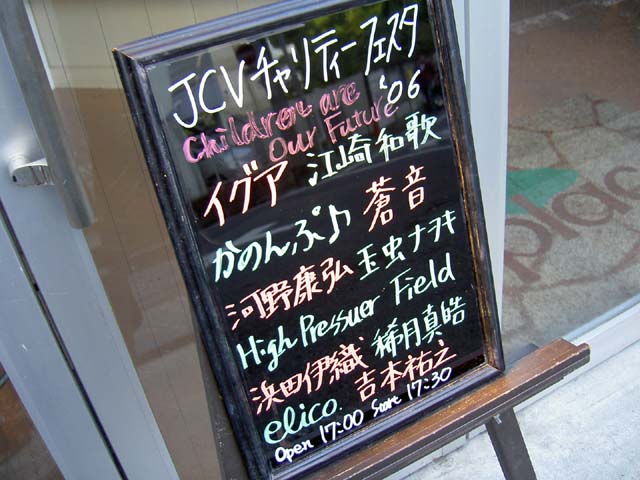 JCVチャリティーフェスタ
'06
Children are
Our Future
イグア 江崎和歌
かのんぷ♪ 蒼音
河野康弘 玉虫ナヲキ
High Pressuer Field
浜田伊織 稀月真皓
elico. 吉本祐之
Open 17:00 Start 17:30
plac